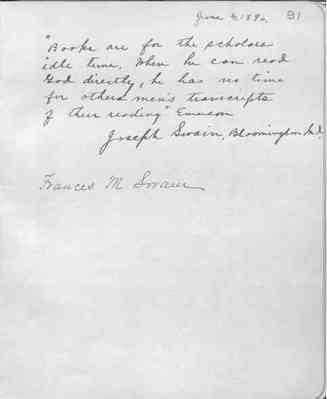 June 6, 1890. 91
"Books are for the scholars
idle time. When he can read
God directly, he has no time
for other men's transcripts
of their reading" Emerson
Joseph Swain, Bloomington Ind.
Frances M. Swain